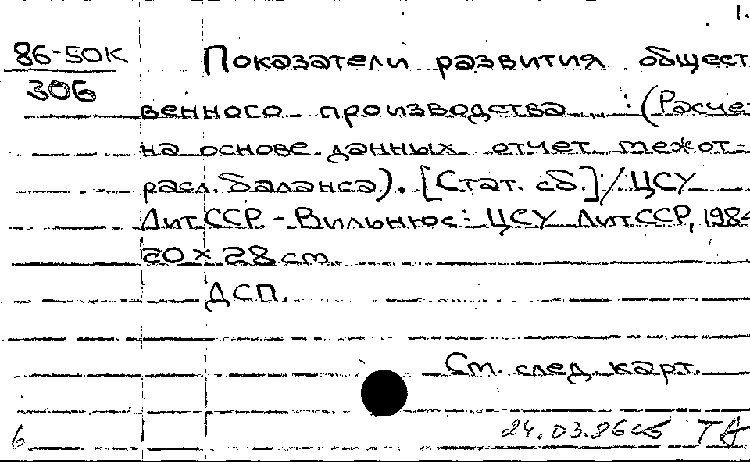 1.
86-50К Показатели развития общест
306
венного производства : (Расче
на основе данных отчет межот-
расл. баланса). [Стат. сб.] / ЦСУ
ЛитССР. - Вильнюс: ЦСУ ЛитССР, 198
20 x 28 cm
ДСП.
См. след. карт.
6 24.03.86